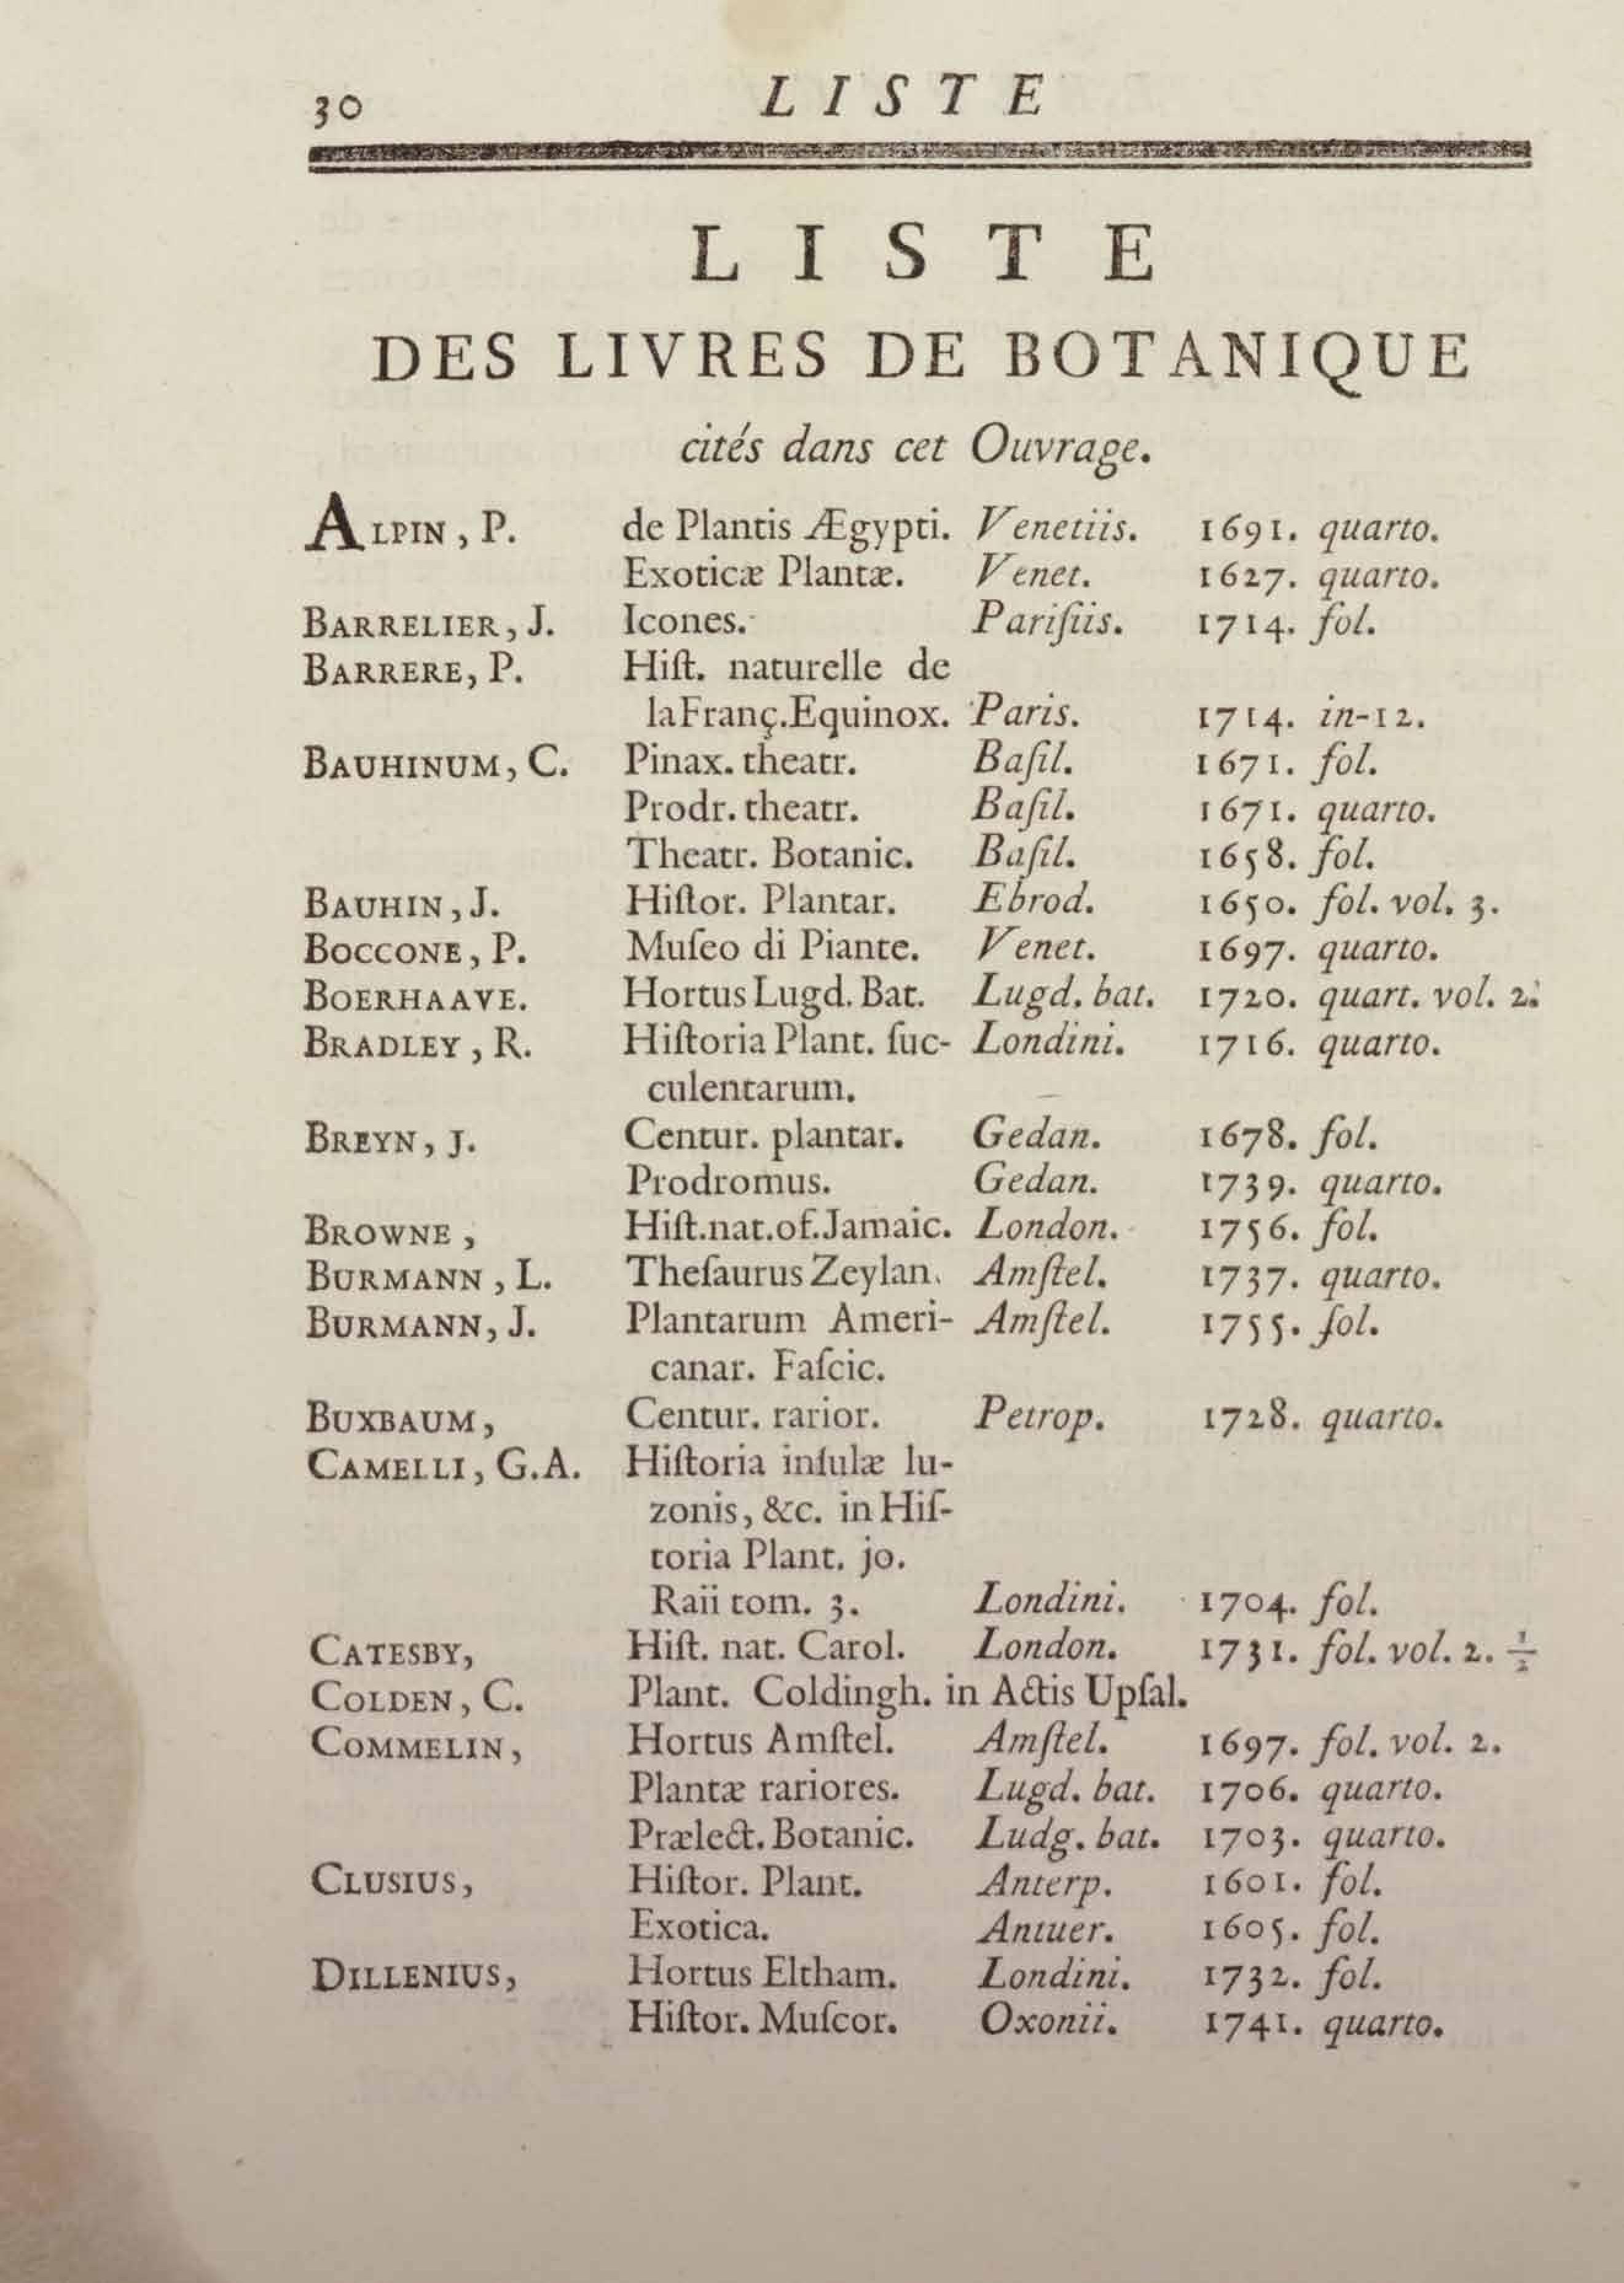 30 LISTE
LISTE
DES LIVRES DE BOTANIQUE
cités dans cet Ouvrage.
ALPIN, P. de Plantis Ægypti. Venetiis. 1691. quarto.
Exoticæ Plantæ. Venet. 1627. quarto.
BARRELIER, J. Icones. Pariſiis. 1714. fol.
BARRERE, P. Hiſt. naturelle de
la Franç. Equinox. Paris. 1714. in-12.
BAUHINUM, C. Pinax. theatr. Baſil. 1671. fol.
Prodr. theatr. Baſil. 1671. quarto.
Theatr. Botanic. Baſil. 1658. fol.
BAUHIN, J. Hiſtor. Plantar. Ebrod. 1650. fol. vol. 3.
BOCCONE, P. Muſeo di Piante. Venet. 1697. quarto.
BOERHAAVE. Hortus Lugd. Bat. Lugd. bat. 1720. quart. vol. 2.
BRADLEY, R. Hiſtoria Plant. ſuc- Londini. 1716. quarto.
culentarum.
BREYN, J. Centur. plantar. Gedan. 1678. fol.
Prodromus. Gedan. 1739. quarto.
BROWNE, Hiſt.nat.of.Jamaic. London. 1756. fol.
BURMANN, L. Theſaurus Zeylan. Amſtel. 1737. quarto.
BURMANN, J. Plantarum Ameri- Amſtel. 1755. fol.
canar. Faſcic.
BUXBAUM, Centur. rarior. Petrop. 1728. quarto.
CAMELLI, G.A. Hiſtoria inſulæ lu-
zonis, &c. in Hiſ-
toria Plant. jo.
Raii tom. 3. Londini. 1704. fol.
CATESBY, Hiſt. nat. Carol. London. 1731. fol. vol. 2. ½
COLDEN, C. Plant. Coldingh. in Actis Upſal.
COMMELIN, Hortus Amſtel. Amſtel. 1697. fol. vol. 2.
Plantæ rariores. Lugd. bat. 1706. quarto.
Prælect. Botanic. Ludg. bat. 1703. quarto.
CLUSIUS, Hiſtor. Plant. Anterp. 1601. fol.
Exotica. Antuer. 1605. fol.
DILLENIUS, Hortus Eltham. Londini. 1732. fol.
Hiſtor. Muſcor. Oxonii. 1741. quarto.